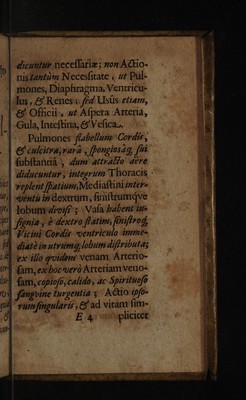 dicuntur necessariæ; non Actio-
nis tantùm Necessitate, ut Pul-
mones, Diaphragma, Ventricu-
lus, & Renes; sed Usûs etiam,
& Officii, ut Aspera Arteria,
Gula, Intestina, & Vesica.
Pulmones flabellum Cordis,
& culcitra, rarâ, spongiosâq; sui
substantiâ, dum attracto aëre
diducuntur, integrum Thoracis
replent spatium, Mediastini inter-
ventu in dextrum, sinistrumque
lobum divisi; Vasa habent in-
signia, è dextro statim, sinistroq;
Vicini Cordis ventriculo imme-
diatè in utrumq; lobum distributa;
ex illo quidem venam Arterio-
sam, ex hoc verò Arteriam veno-
sam, copioso, calido, ac Spirituoso
sanguine turgentia; Actio ipso-
rum singularis, & ad vitam sim-
E 4 pliciter